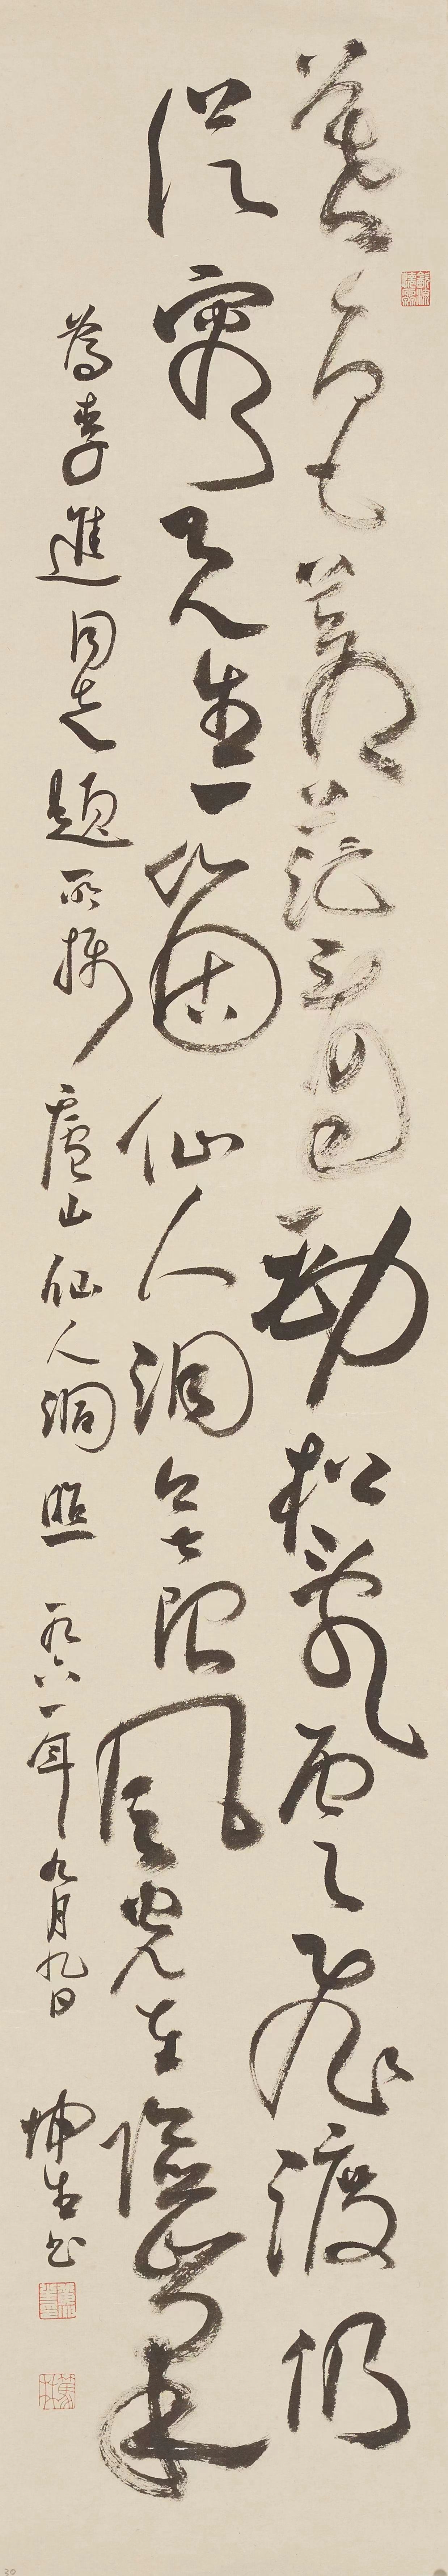 暮色蒼茫看勁松亂雲飛渡仍
從容天生一箇仙人洞無限風光在險峯
為李進同志題所攝廬山仙人洞照 一九六一年九月九日 書